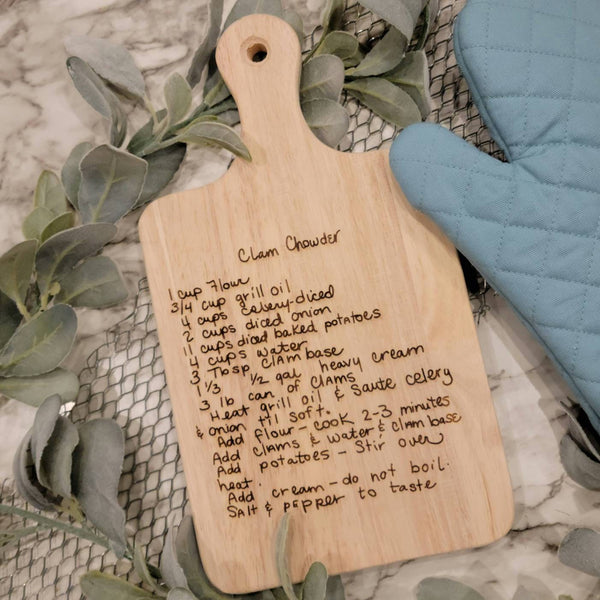 Clam Chowder
1 cup Flour
3/4 cup grill oil
4 cups celery-diced
2 cups diced onion
11 cups diced baked potatoes
4 cups water
3 Tbsp clam base
1/3 1/2 gal heavy cream
3 lb can of clams
Heat grill oil & Saute celery
& onion til soft.
Add flour - cook 2-3 minutes
Add clams & water & clam base
Add potatoes - Stir over
heat.
Add cream - do not boil.
Salt & PEPPER to taste